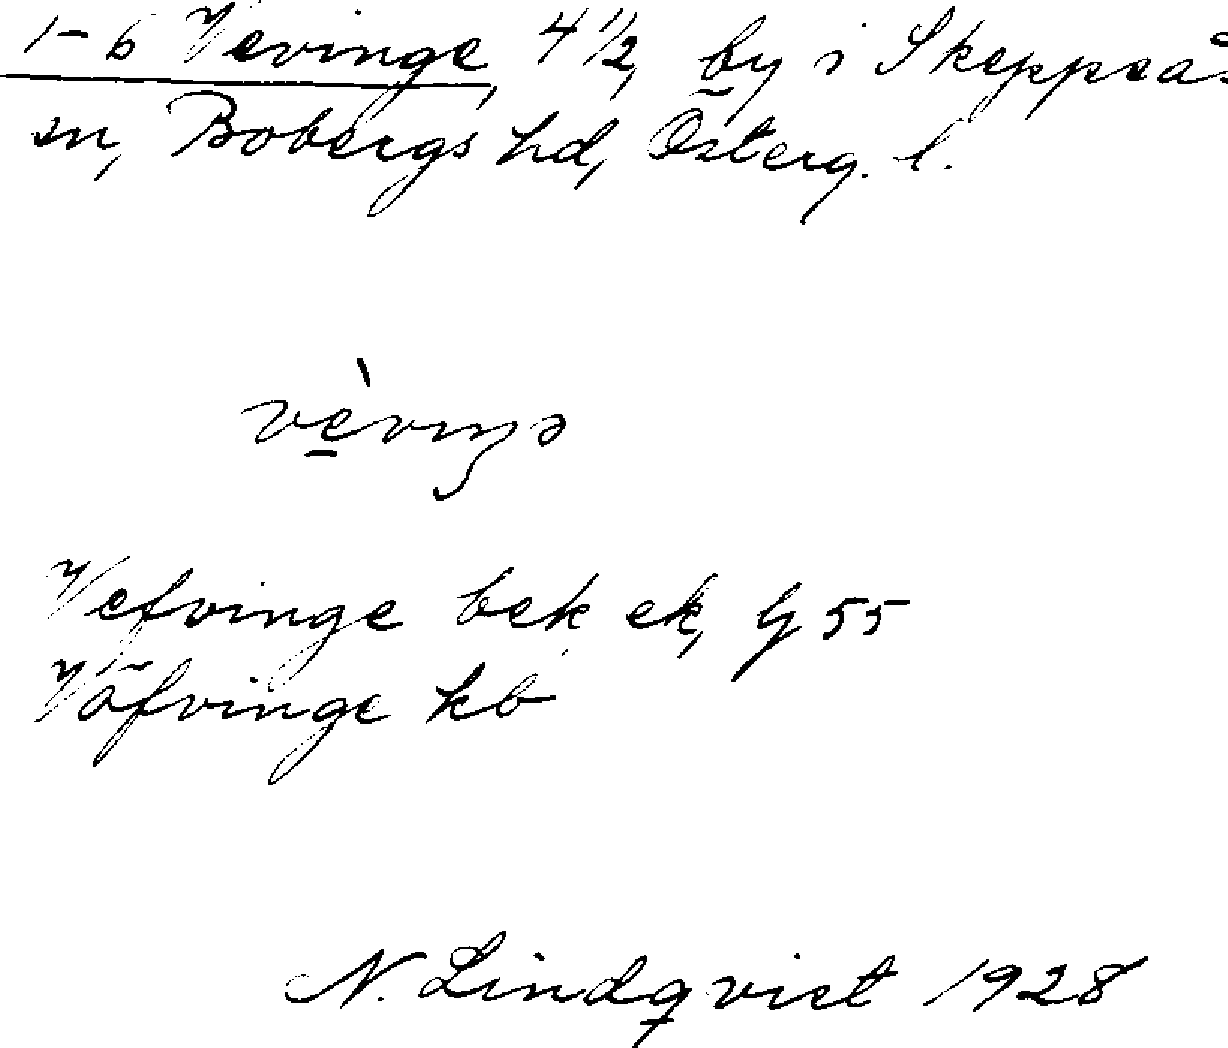 1-6 Vevinge, 4 1/2, by i Skeppsås
sn, Bobergs hd, Österg. l.
vè̱viŋə
Vefvinge bek ek, Gj 55
Väfvinge kb
N. Lindqvist 1928